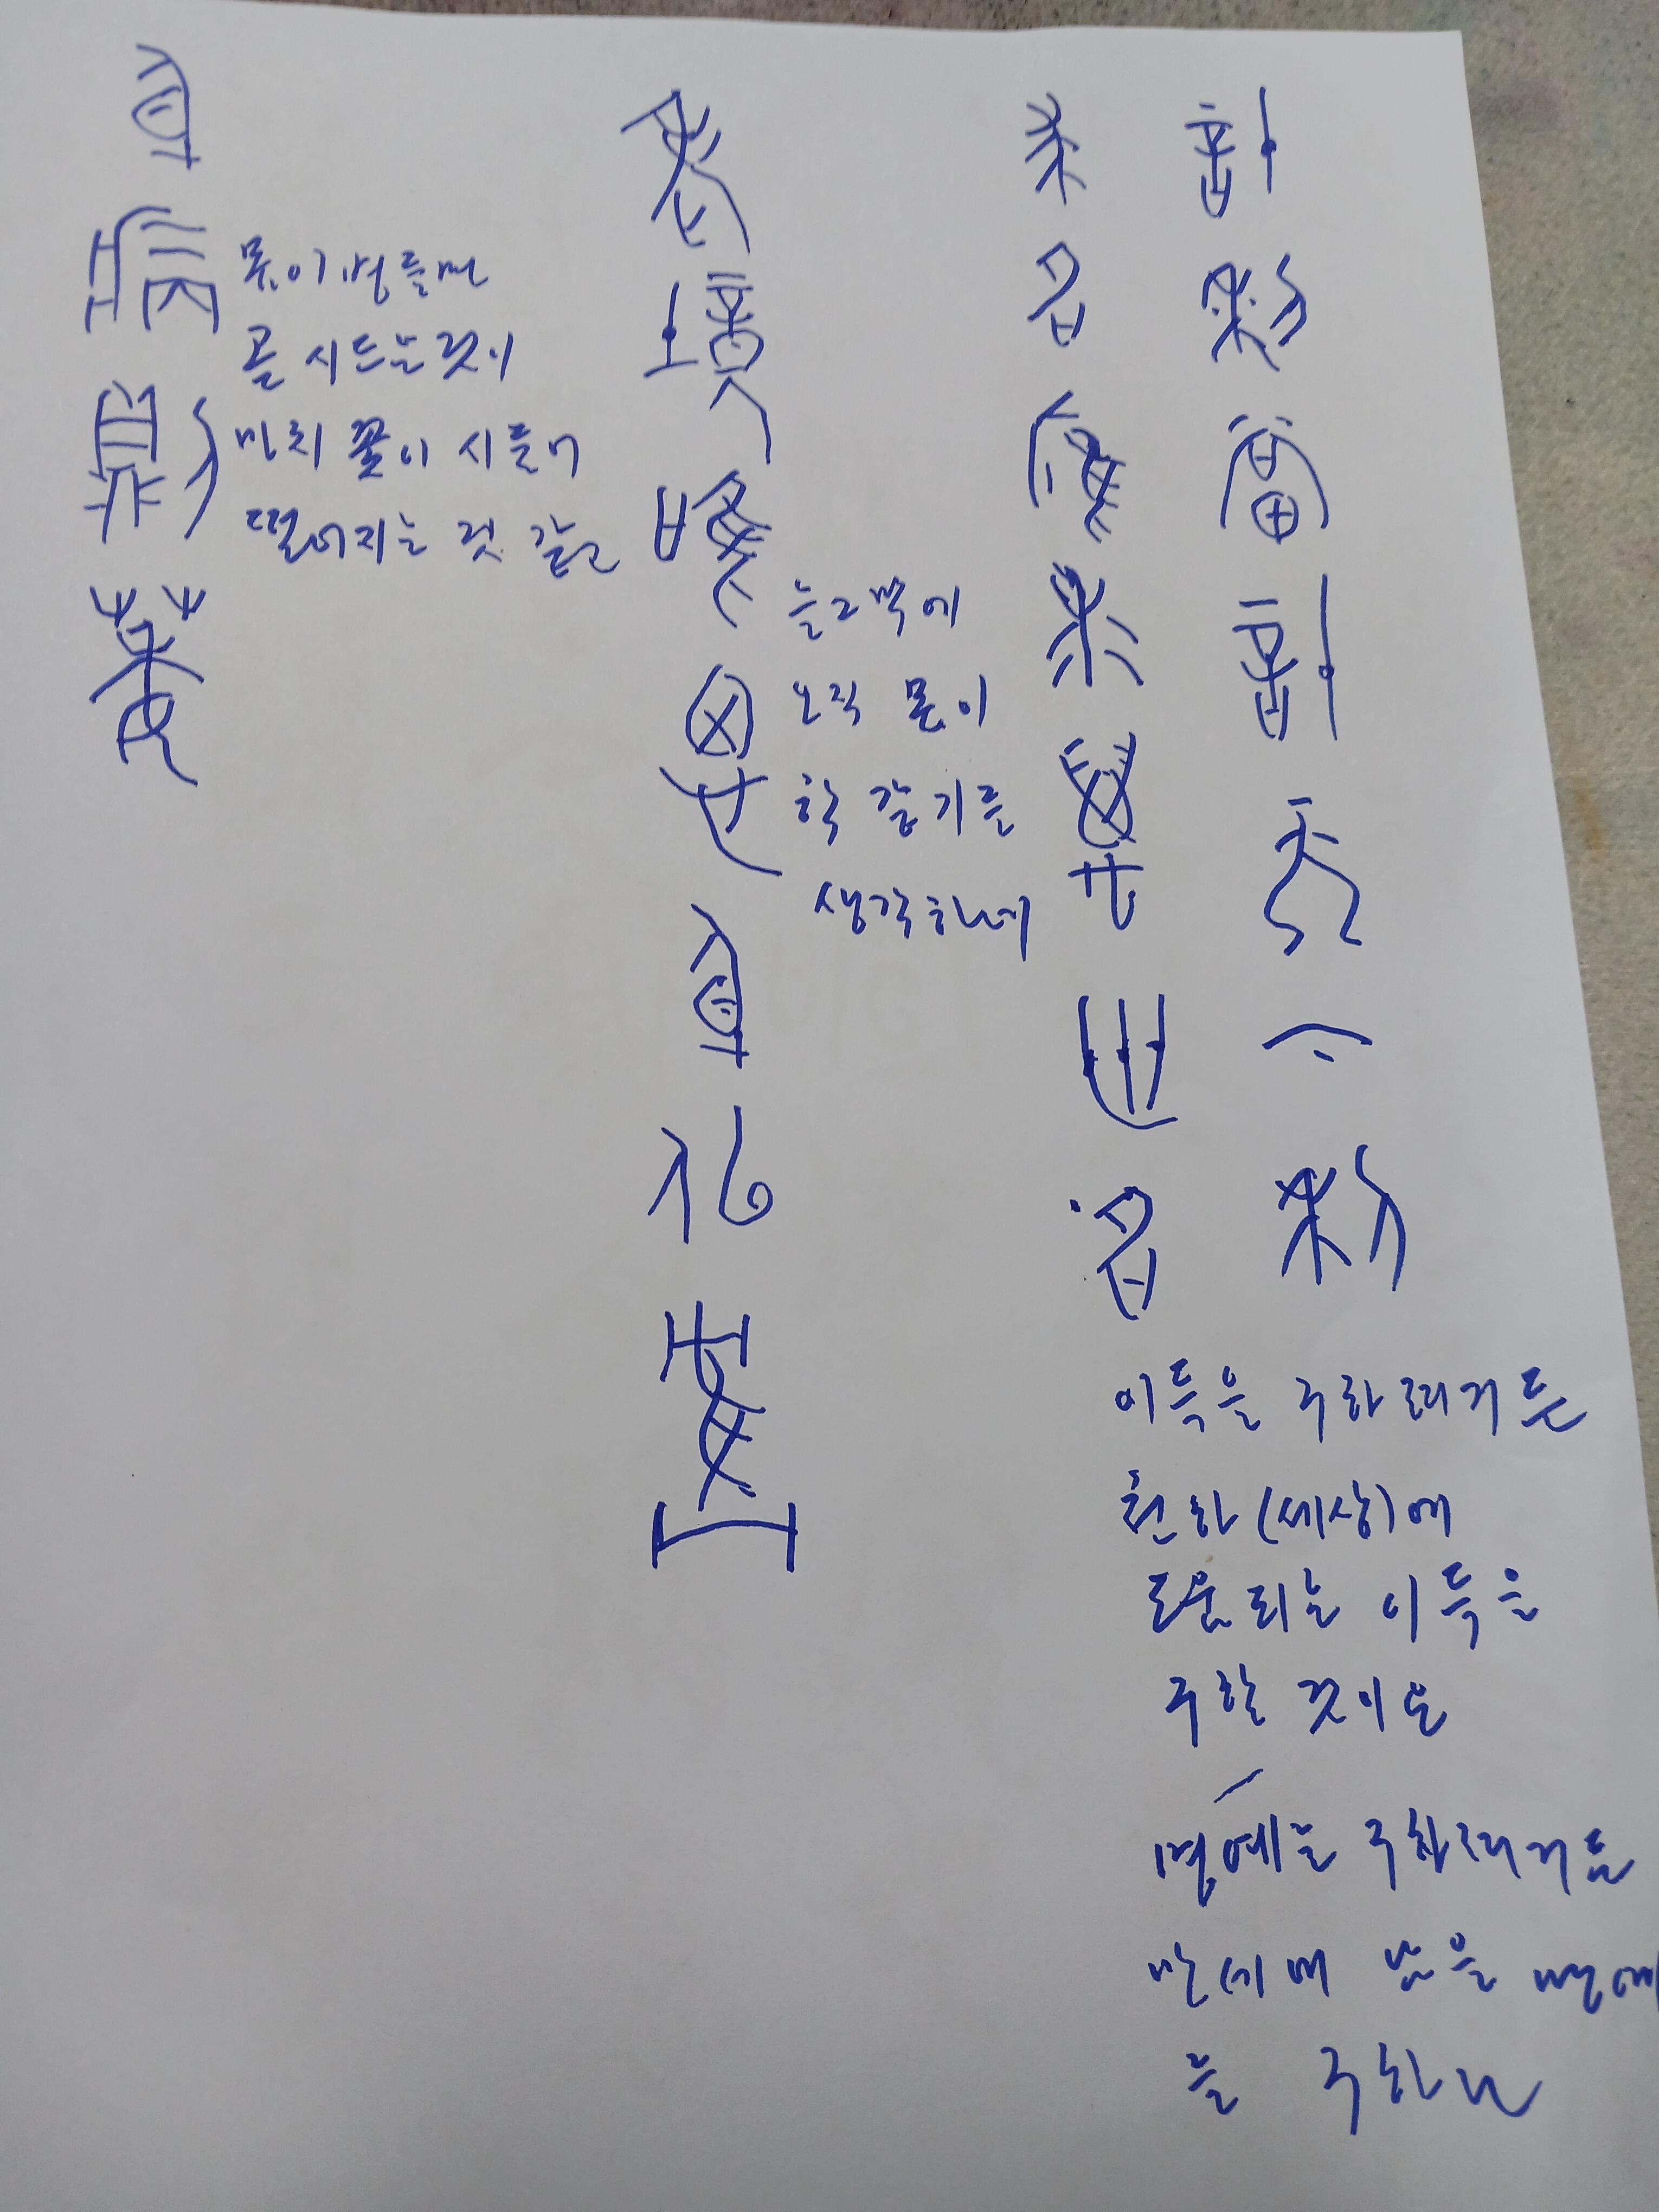 計利當計天下利
求名應求萬世名
이득을 구하려거든
천하(세상)에
도움 되는 이득을
구할 것이요
명예를 구하려거든
만세에 남을 명예
를 구하라
老境唯思身似
늙그막에
오직 몸이
학 같기를
생각하네
身
몸이 병들면
곧 시드는것이
마치 꽃이 시들어
떨어지는 것 같고